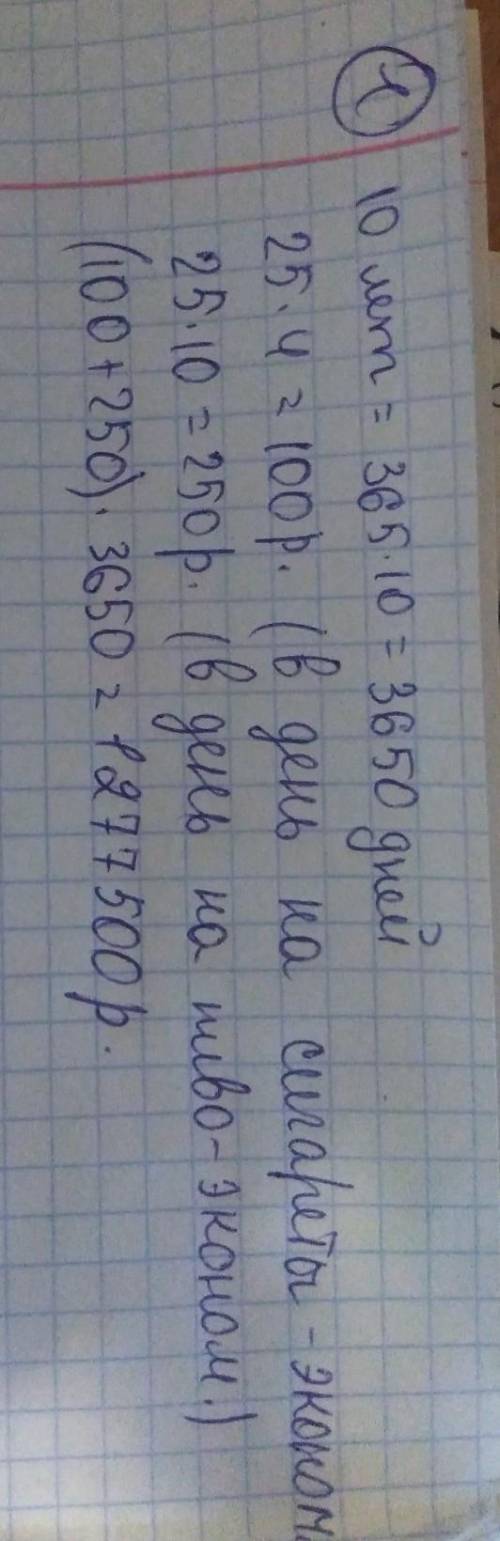 1
10 лет = 365·10 = 3650 дней
25·4 = 100р. (в день на сигареты - эконом.
25·10 = 250р. (в день на пиво - эконом.)
(100+250)·3650 = 1277500р.